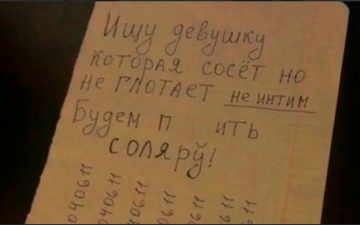 Ищу девушку
которая сосёт но
не глотает не интим
Будем п ить
соляру!
040611
040611
040611
040611
040611
040611